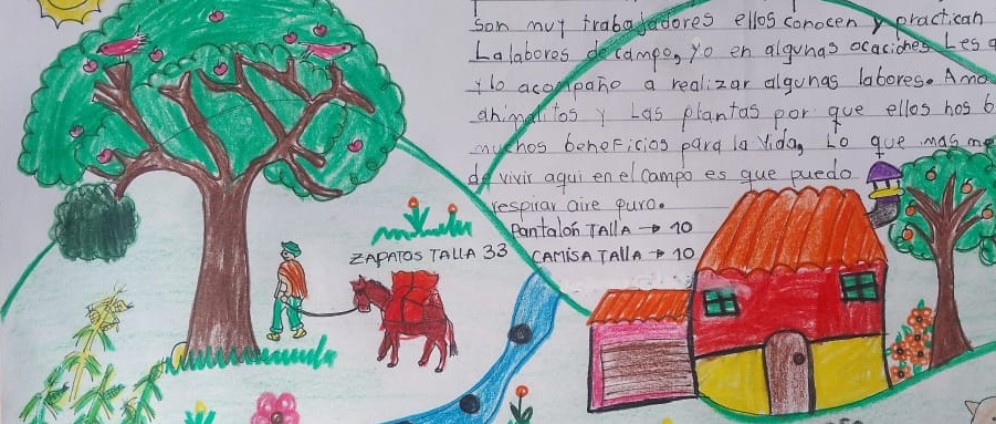 Son muy trabajadores ellos conocen y practican
La labores de campo, yo en algunas ocaciones Les
y lo acompaño a realizar algunas labores. Amo
animalitos y Las plantas por que ellos nos
muchos beneficios para la vida, Lo que mas me
de vivir aqui en el campo es que puedo
respirar aire puro.
Pantalon TALLA → 10
ZAPATOS TALLA 33 CAMISA TALLA → 10